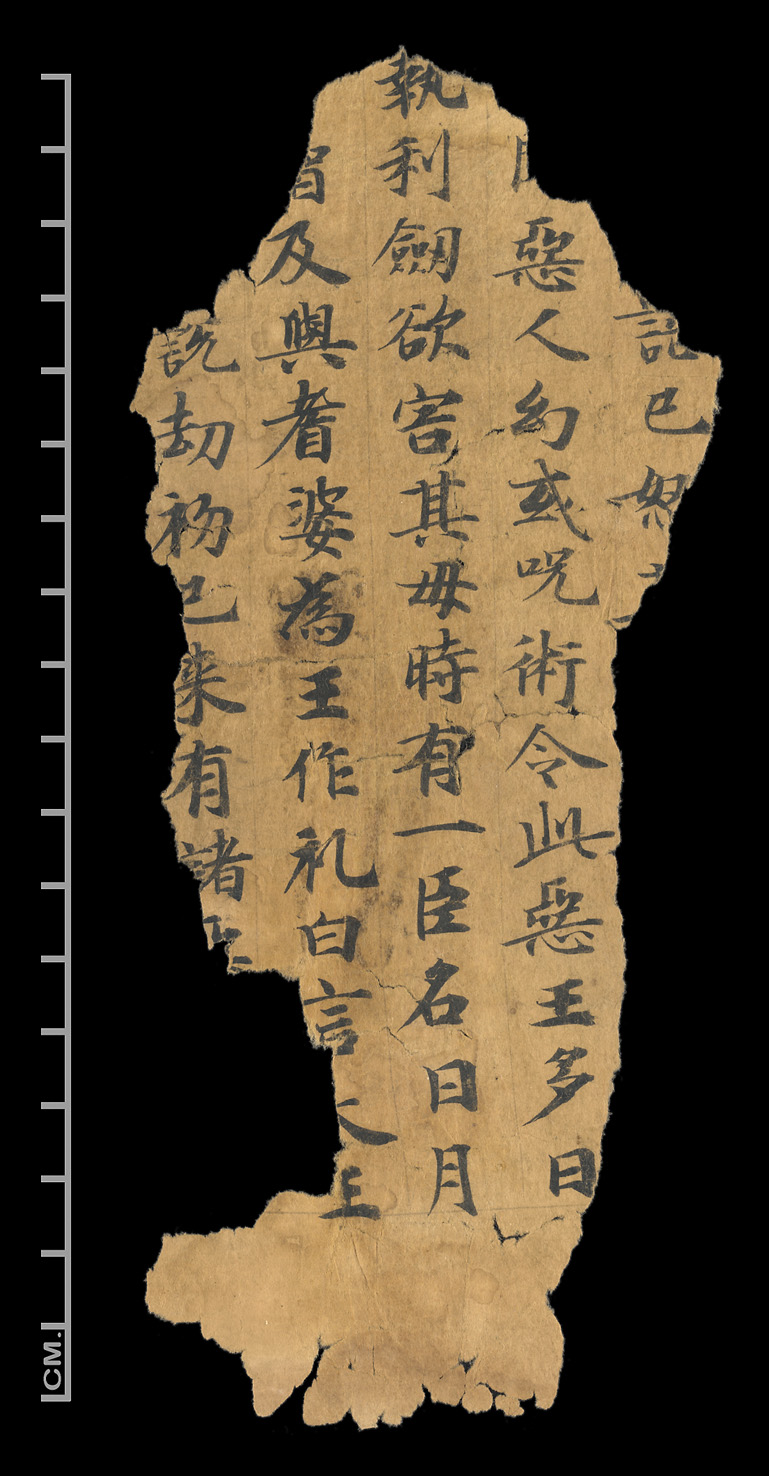 記已怒
惡人幻惑呪術令此惡王多日
執利劔欲害其母時有一臣名曰月
及與耆婆為王作礼白言大王
說劫初已来有諸惡